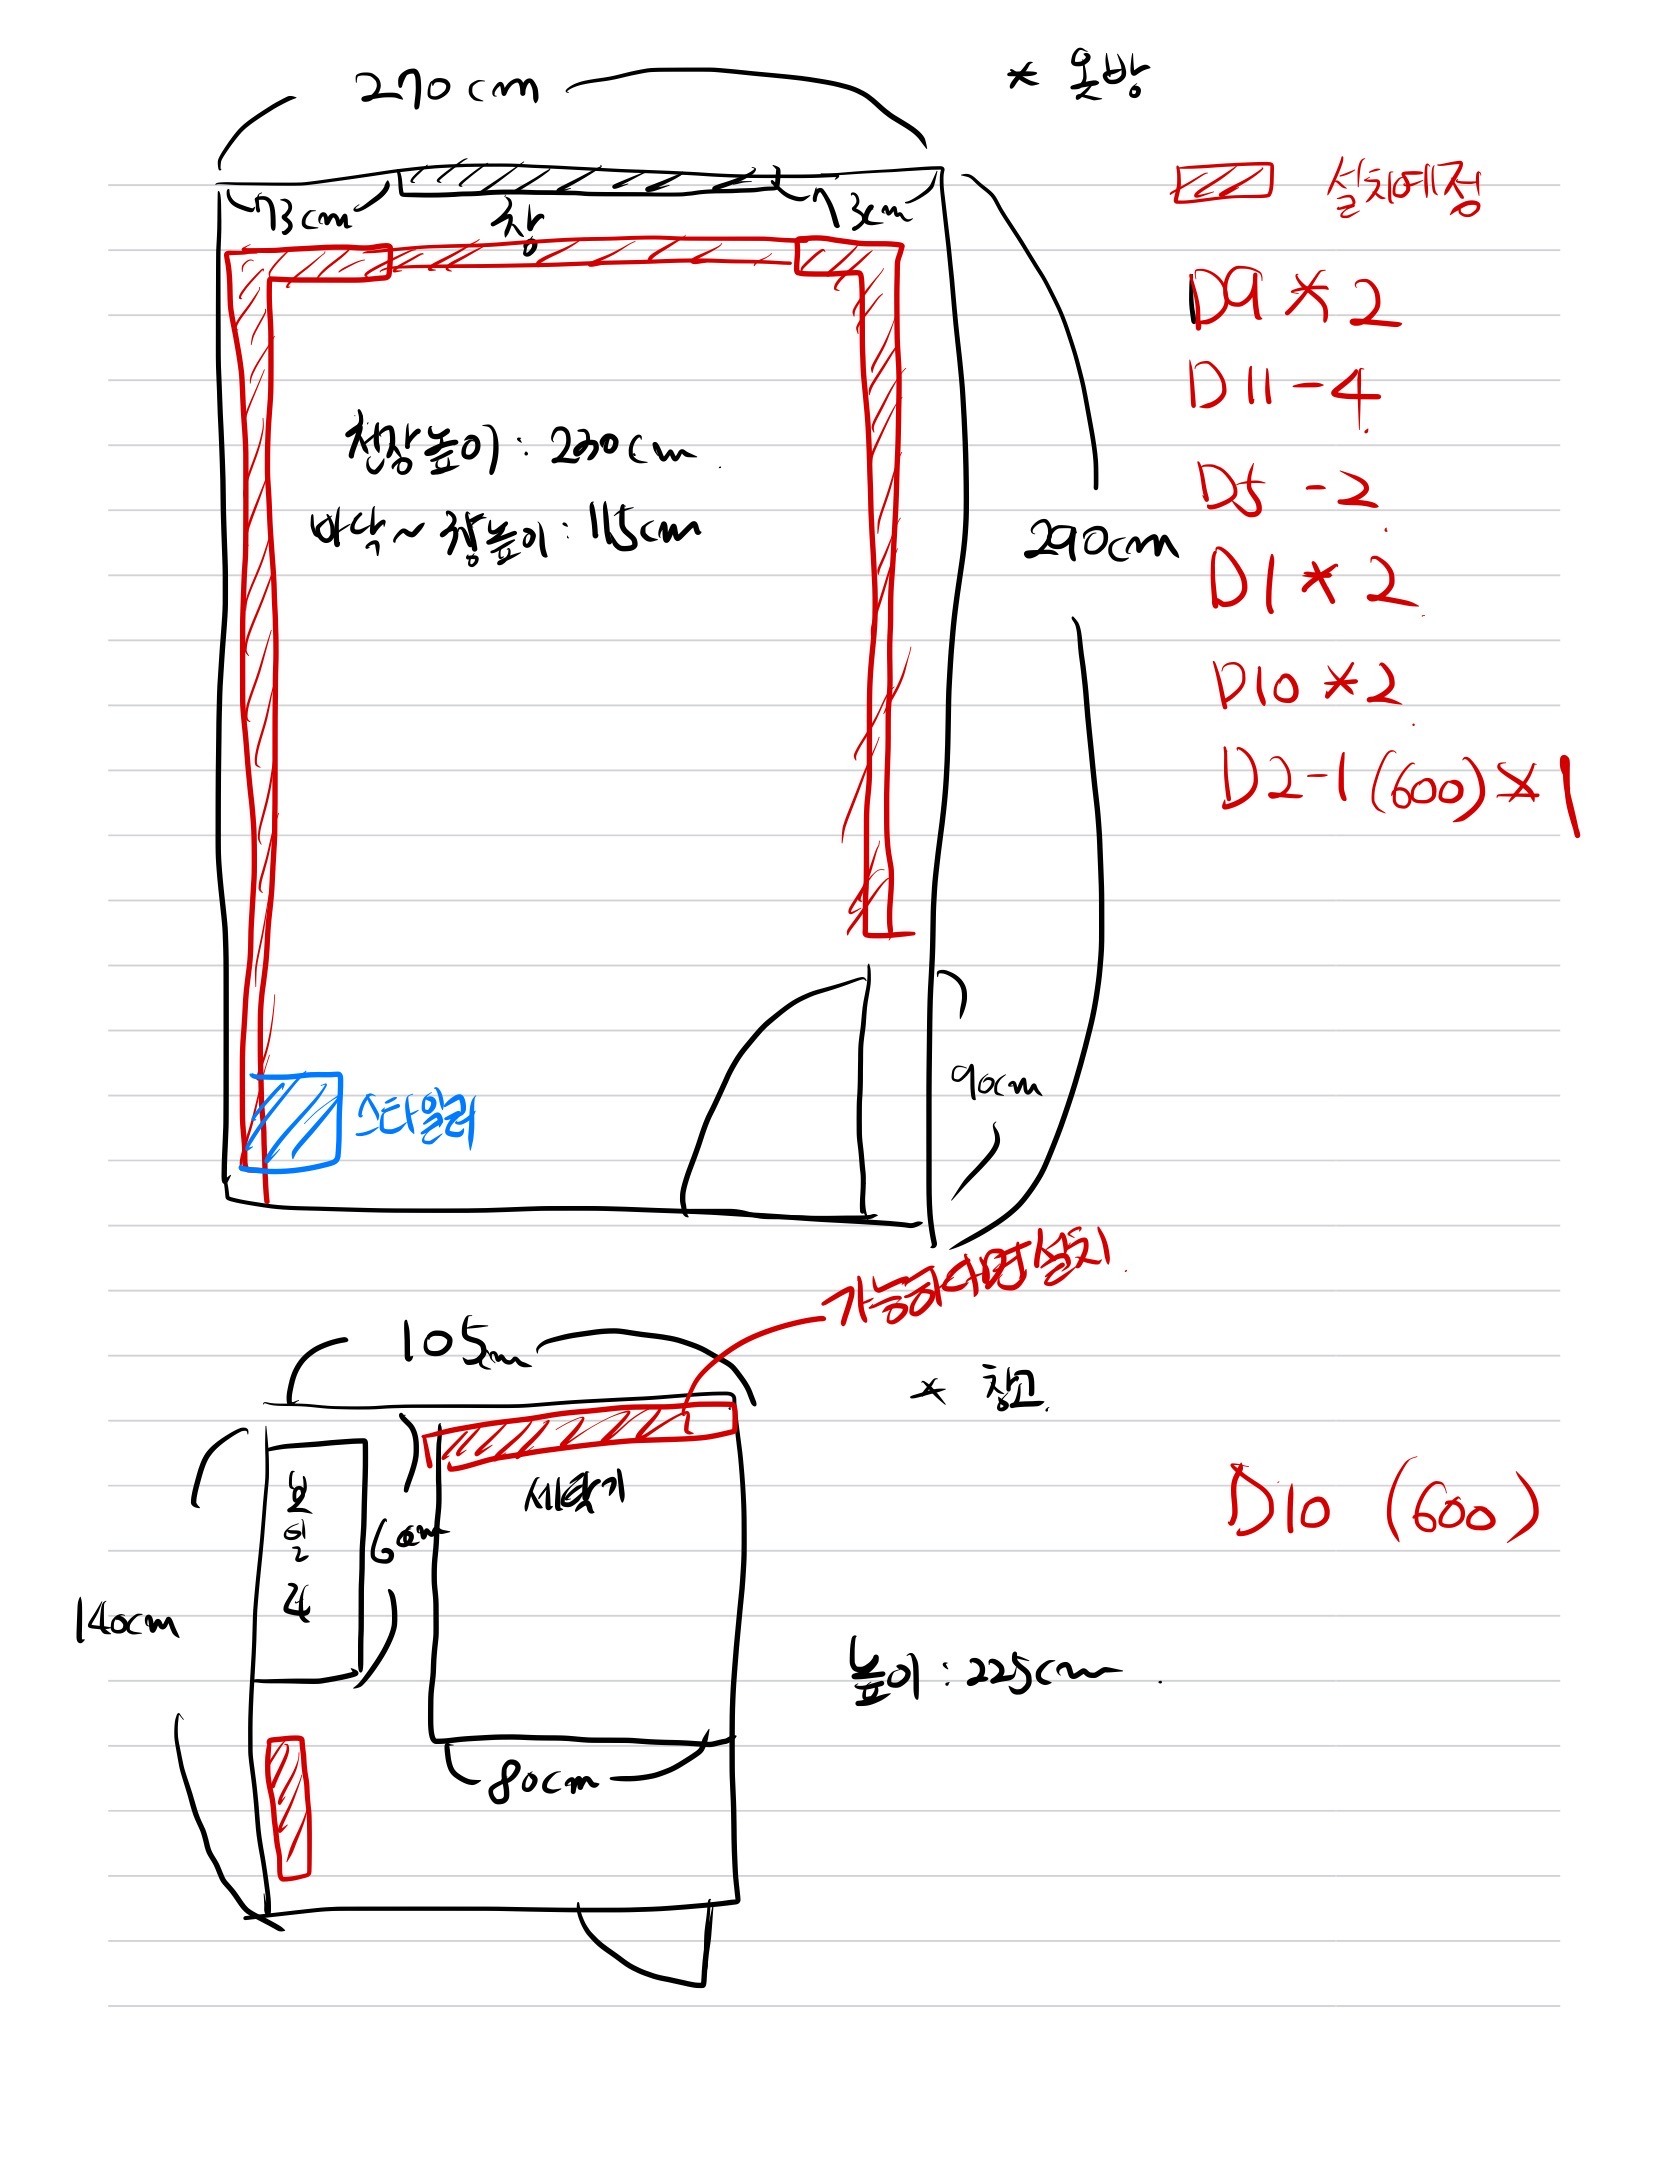 270cm
* 옷방
73cm
창
73cm
설치예정
D9 * 2
D11-4
천장높이 : 230cm
바닥~창높이 : 115cm
D5 -2
290cm
D1 * 2
D10 * 2
D2-1 (600) * 1
90cm
스타일러
가능하다면설치
105cm
* 창고
세탁기
보일러
60cm
D10 (600)
140cm
높이 : 225cm
80cm